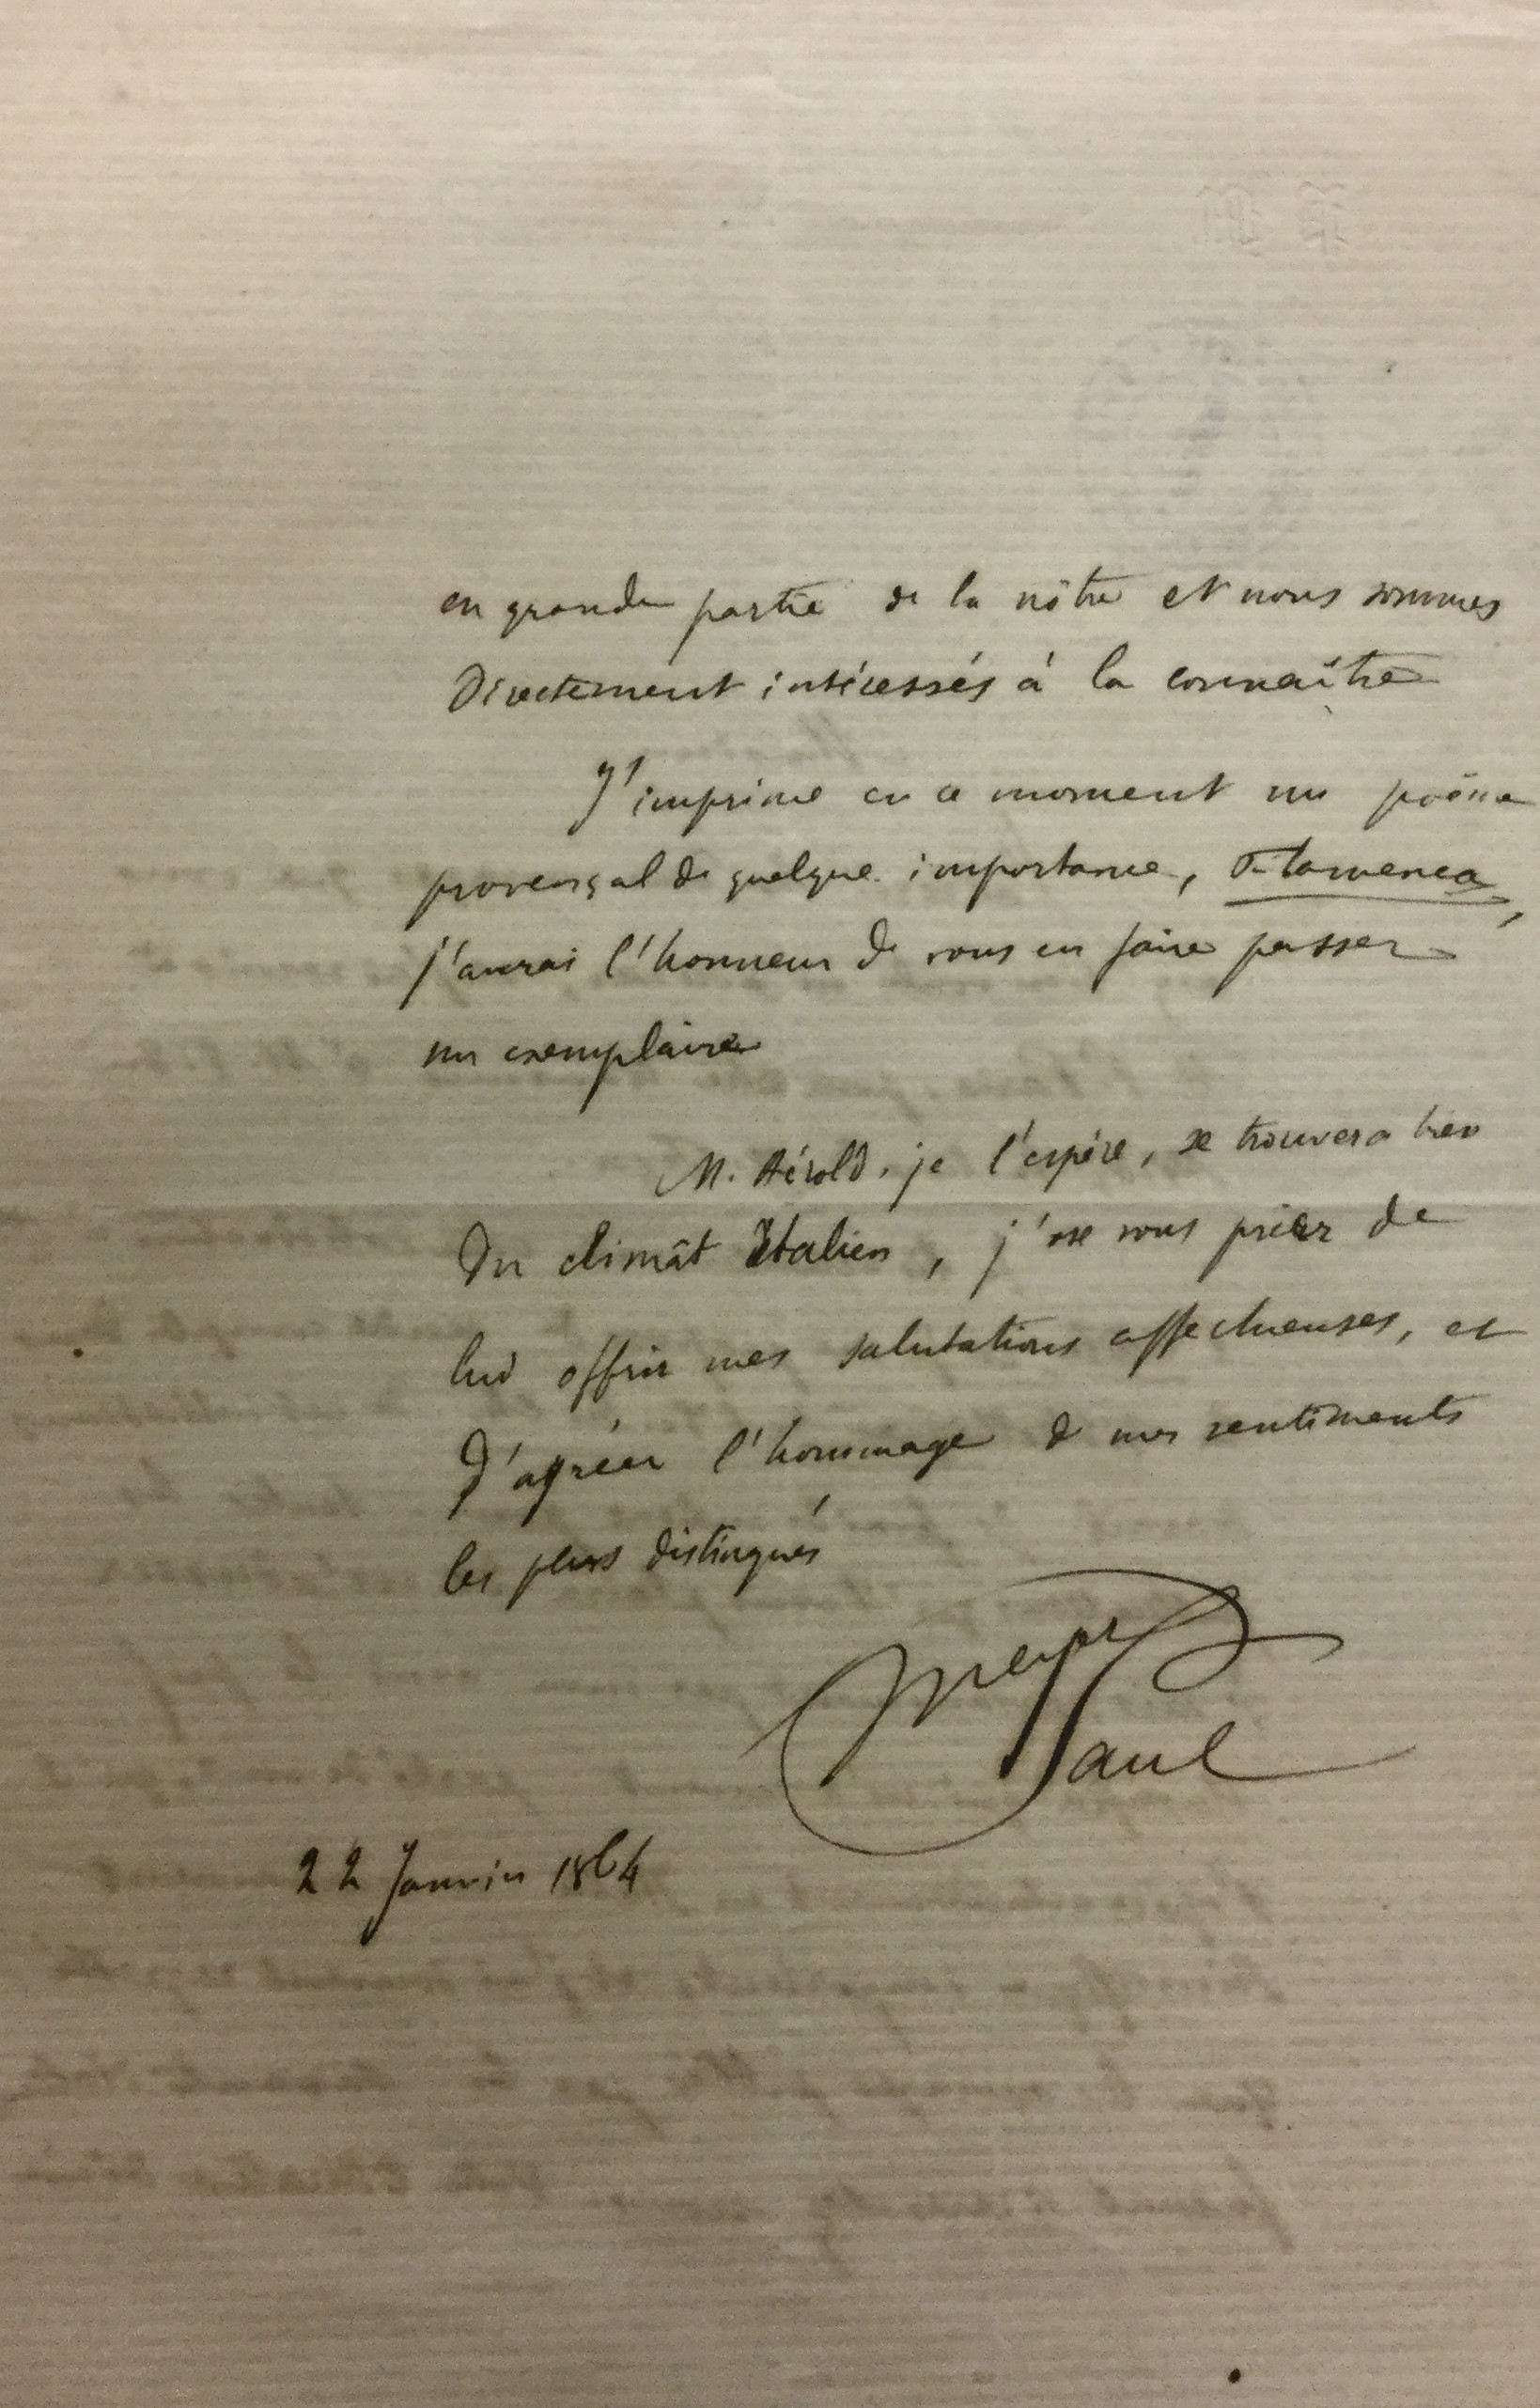 en grande partie de la nôtre et nous sommes
directement intéressés à la connaître
J'imprime en ce moment un poëme
provençal de quelque importance, Flamenca,
j'aurai l'honneur de vous en faire passer
un exemplaire
M. Hérold, je l'espère, se trouvera bien
du climât Italien, j'ose vous prier de
lui offrir mes salutations affectueuses, et
d'agréer l'hommage de mes sentiments
les plus distingués
Meyer
Paul
22 Janvier 1864